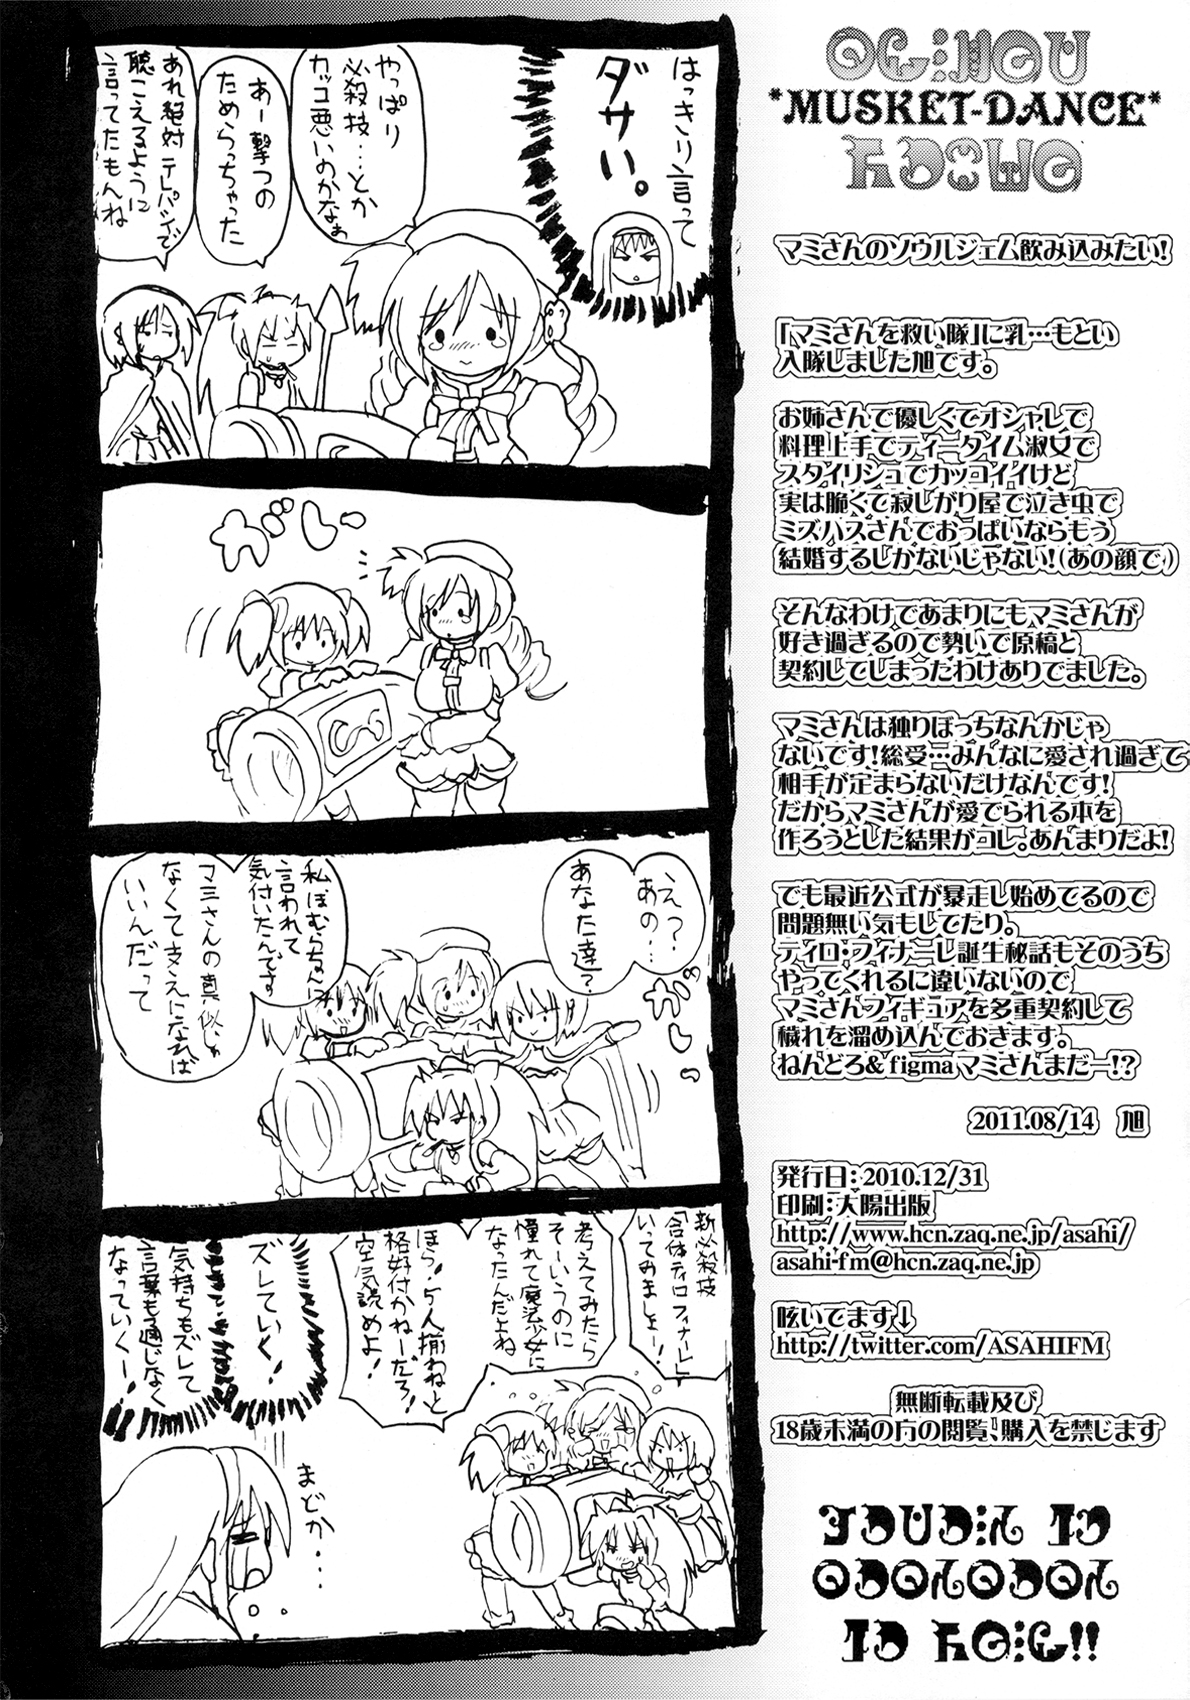 はっきり言って
ダサい。
やっぱり
必殺技…とか
カッコ悪いのかなぁ
あー撃つの
ためらっちゃった
あれ絶対テレパシーで
聴こえるように
言ってたもんね
がしっ
えっ?
あの…
あなた達?
がしっ
私ほむらちゃんに
言われて
気付いたんです。
マミさんの真似じゃ
なくて支えになれば
いいんだって
新必殺技
「合体ティロフィナーレ」
いってみましょー!
考えてみたら
そーいうのに
憧れて魔法少女に
なったんだよね
ほら!5人揃ねえと
格好付かねーだろ!
空気読めよ!
ズレていく!
気持ちもズレて
言葉も通じなく
なっていくー!
まどか…
*MUSKET-DANCE*
マミさんのソウルジェム飲み込みたい!
「マミさんを救い隊」に乳…もとい
入隊しました旭です。
お姉さんで優しくてオシャレで
料理上手でティータイム淑女で
スタイリシュでカッコイイけど
実は脆くて寂しがり屋で泣き虫で
ミズハスさんでおっぱいならもう
結婚するしかないじゃない!(あの顔で)
そんなわけであまりにもマミさんが
好き過ぎるので勢いで原稿と
契約してしまったわけありでました。
マミさんは独りぼっちなんかじゃ
ないです!総受…みんなに愛され過ぎて
相手が定まらないだけなんです!
だからマミさんが愛でられる本を
作ろうとした結果がコレ。あんまりだよ!
でも最近公式が暴走し始めてるので
問題無い気もしてたり。
ティロ・フィナーレ誕生秘話もそのうち
やってくれるに違いないので
マミさんフィギュアを多重契約して
穢れを溜め込んでおきます。
ねんどろ&figmaマミさんまだー!?
2011.08/14 旭
発行日:2010.12/31
印刷:大陽出版
http://www.hcn.zaq.ne.jp/asahi/
asahi-fm@hcn.zaq.ne.jp
呟いてます↓
http://twitter.com/ASAHIFM
無断転載及び
18歳未満の方の閲覧、購入を禁じます